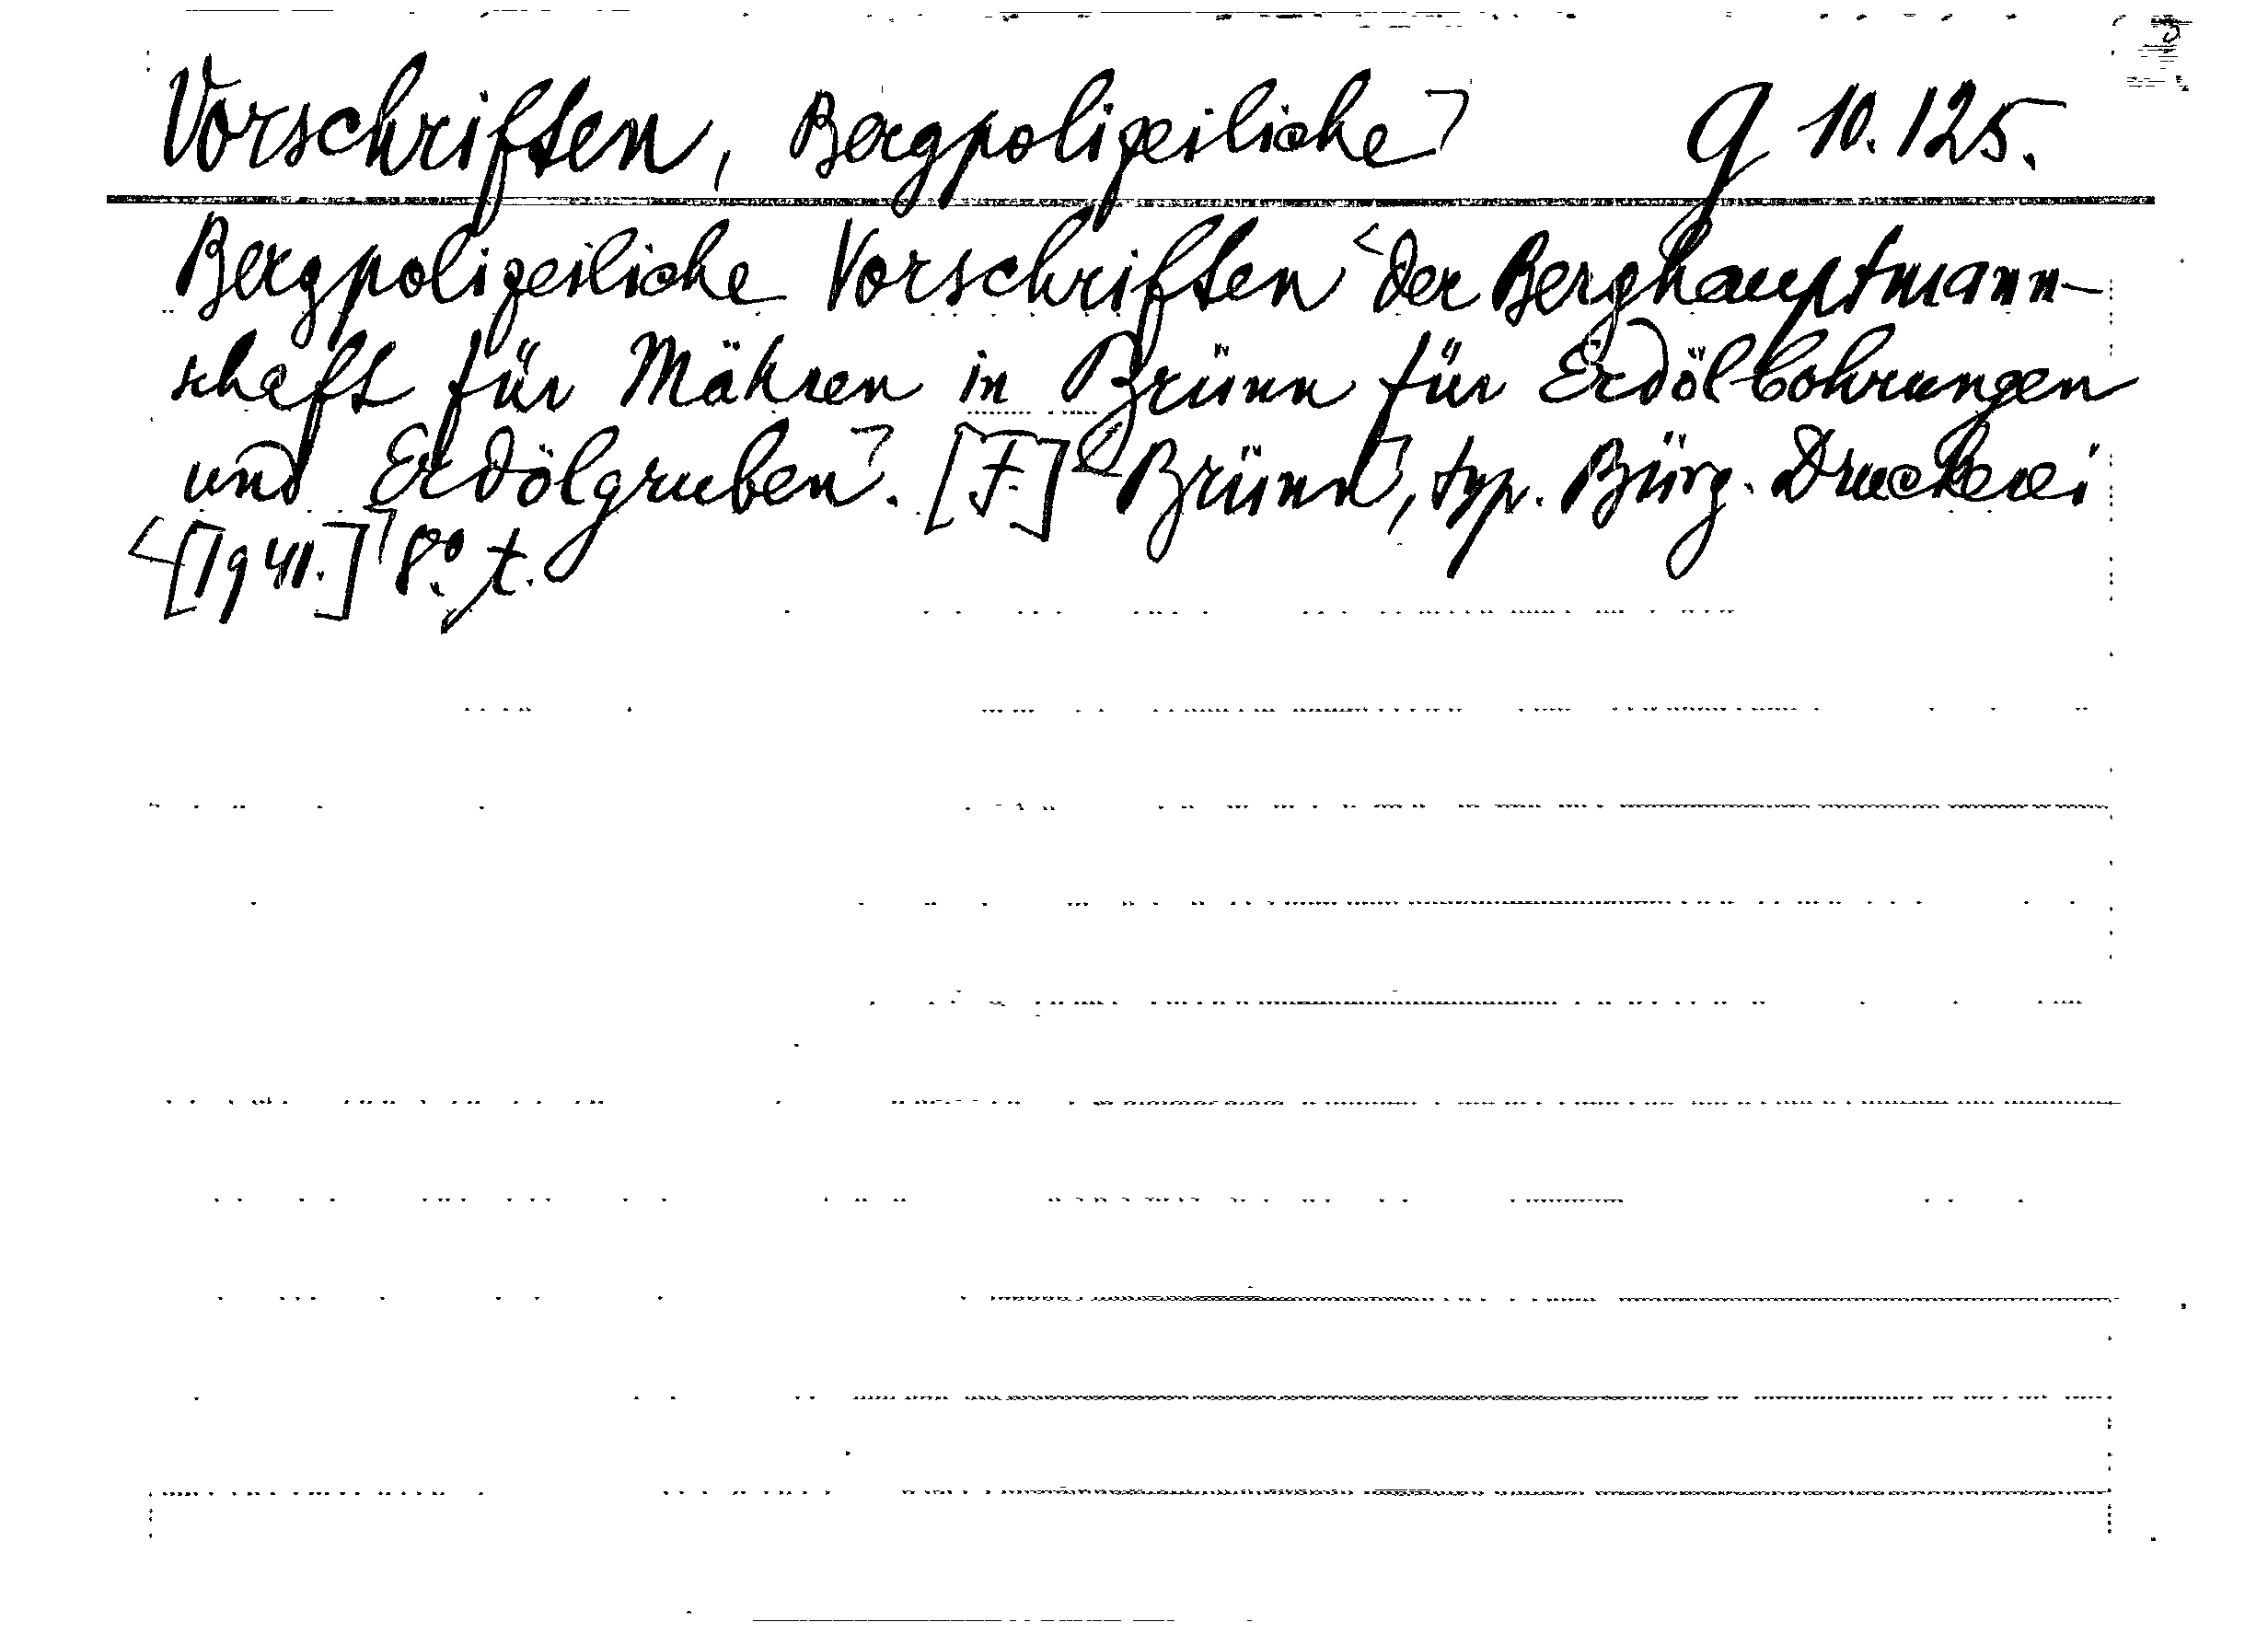 Vorschriften, Bergpolizeiliche⌝ g 10.125.
Bergpolizeiliche Vorschriften <der Berghauptmann-
schaft für Mähren in Brünn für Erdölbohrungen
und Erdölgruben⌝. [F.] <Brünn⌝, typ. Bürg. Druckerei
<[1941.]⌝ 8°. t.